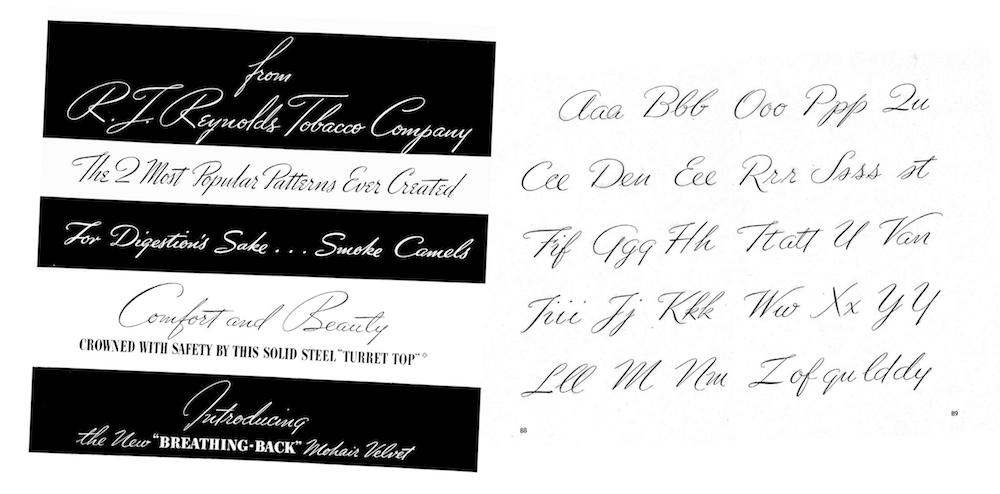 from
R. J. Reynolds Tobacco Company
The 2 Most Popular Patterns Ever Created
For Digestion's Sake... Smoke Camels
Comfort and Beauty
CROWNED WITH SAFETY BY THIS SOLID STEEL "TURRET TOP"
Introducing
the New "BREATHING-BACK" Mohair Velvet
Aaa Bbb Ooo Pppp Qu
Cee Den Eee Rrr Ssss st
Fif Gggg Hh Ttatt U Van
Iiii Jj Kkk Ww Xx Y Y
Lll M Nm Z of qu ld dy
88
89